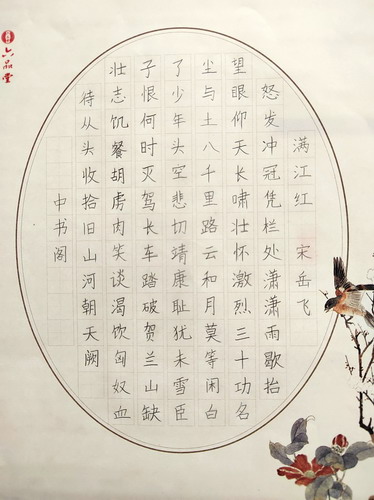 满江红 宋岳飞
怒发冲冠凭栏处潇潇雨歇抬
望眼仰天长啸壮怀激烈三十功名
尘与土八千里路云和月莫等闲白
了少年头空悲切靖康耻犹未雪臣
子恨何时灭驾长车踏破贺兰山缺
壮志饥餐胡虏肉笑谈渴饮匈奴血
待从头收拾旧山河朝天阙
中书阁
六品堂